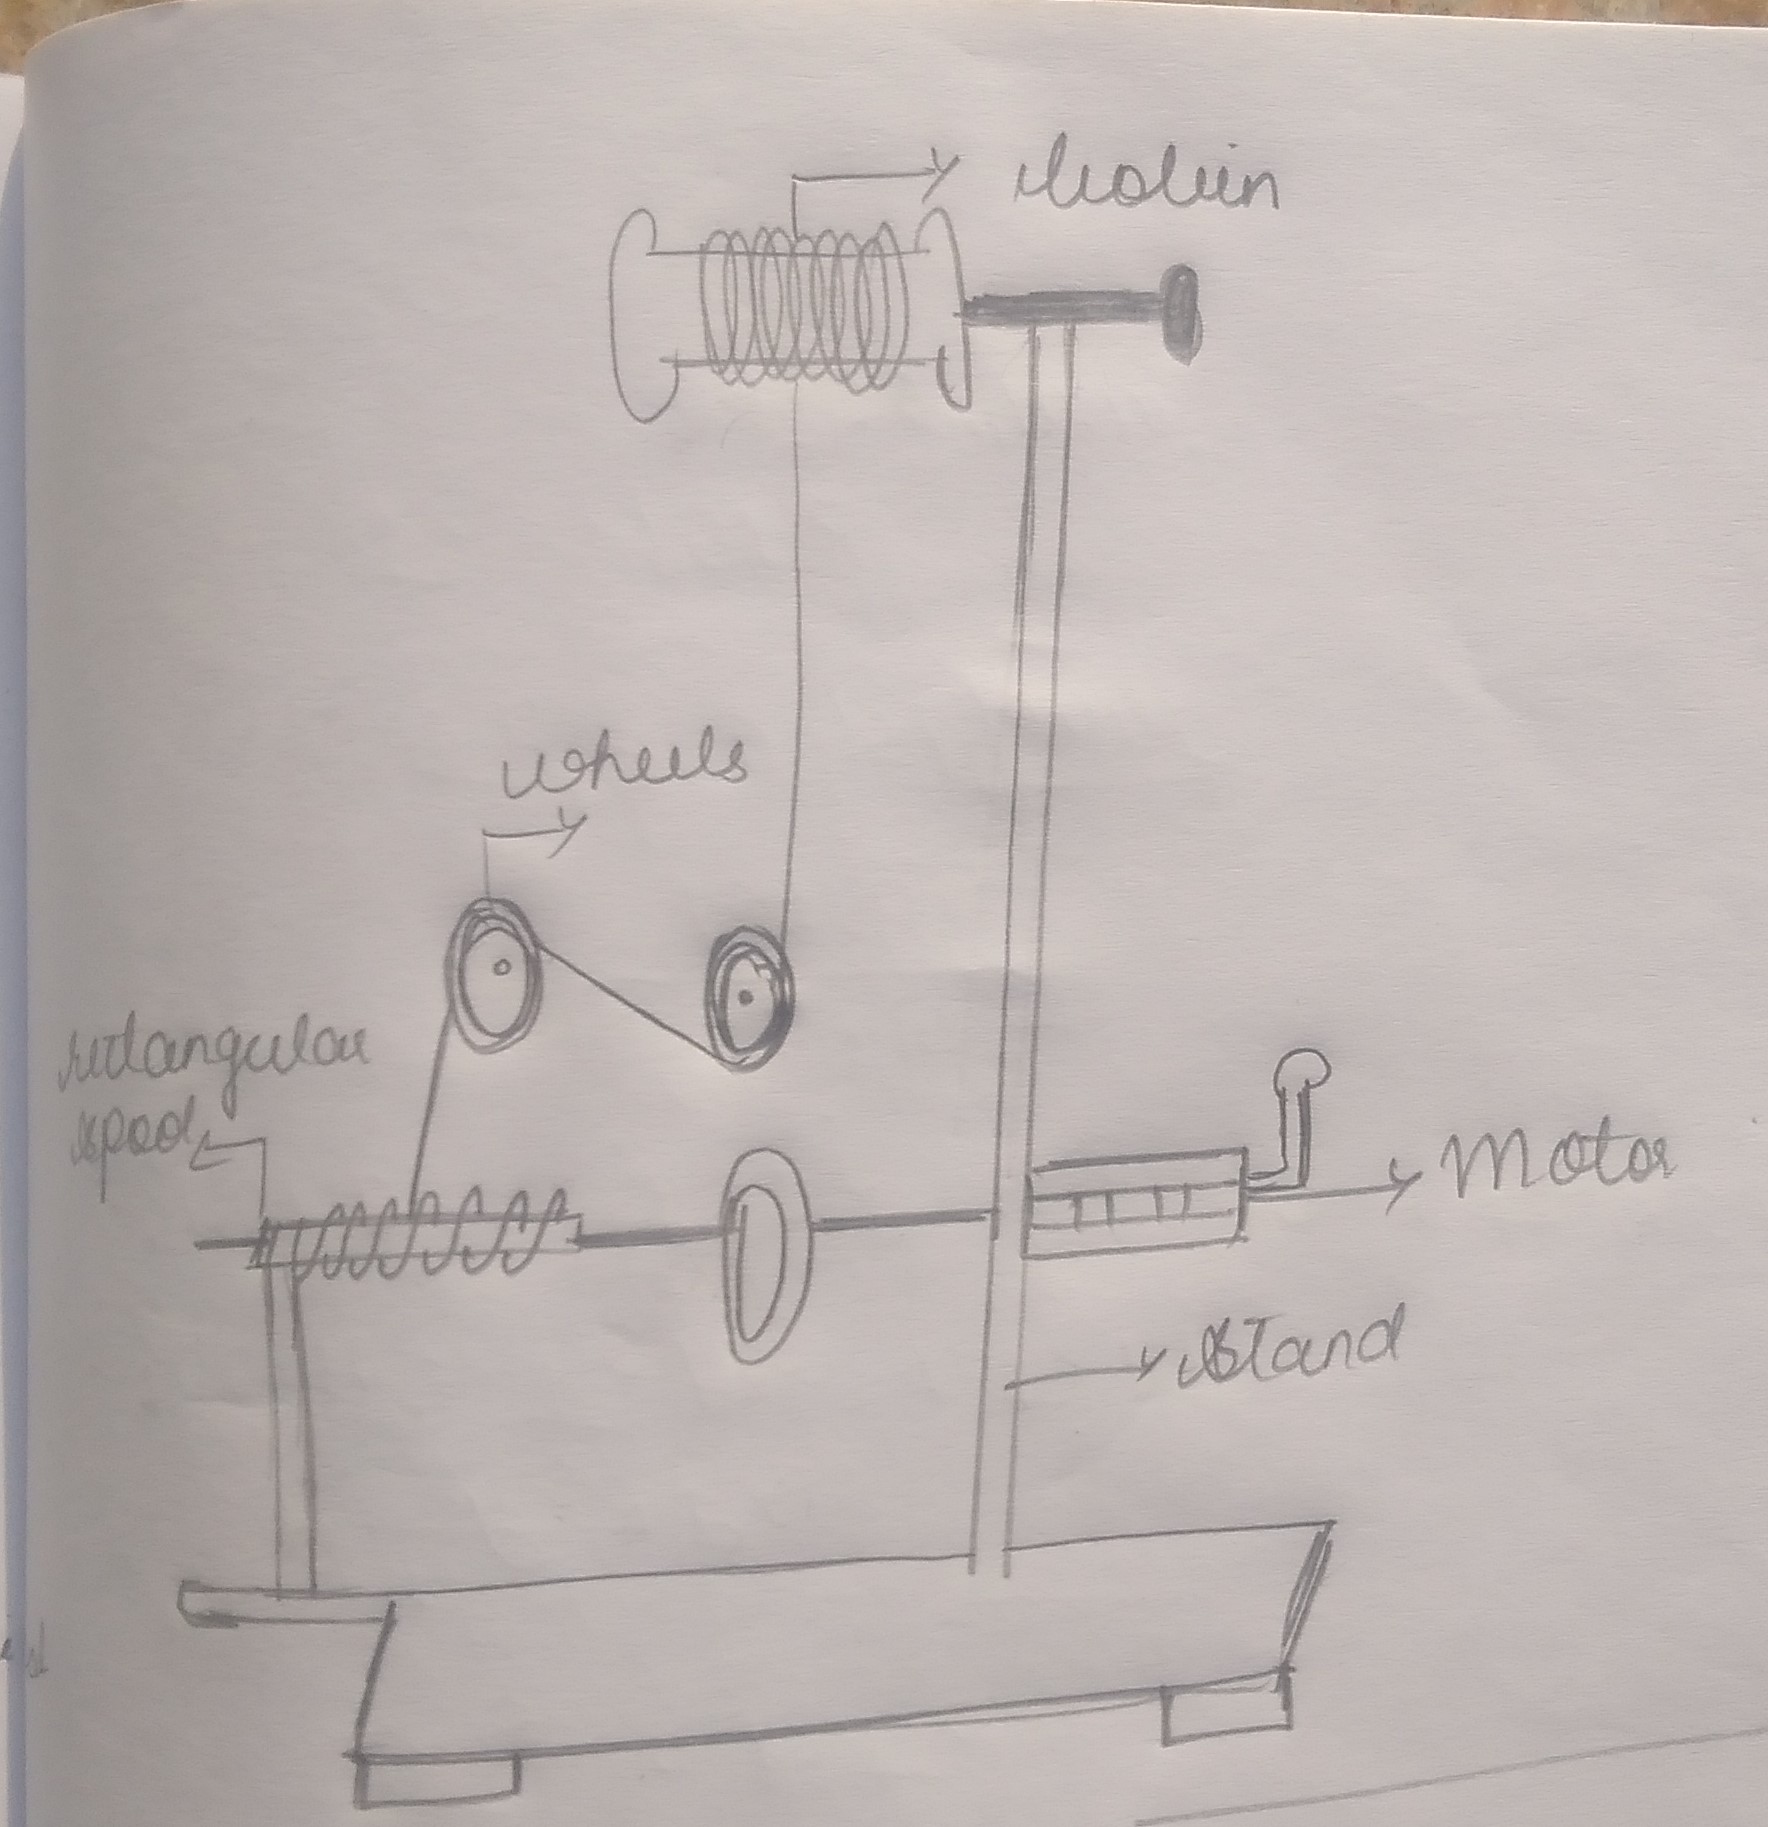 bobin
wheels
rectangular
spod
Motor
stand